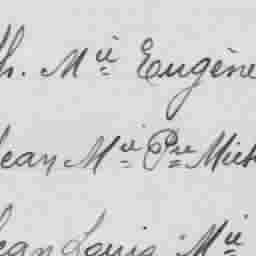 h. Mie Eugène
Jean Mie Pre Mich
Jean Louis Mie